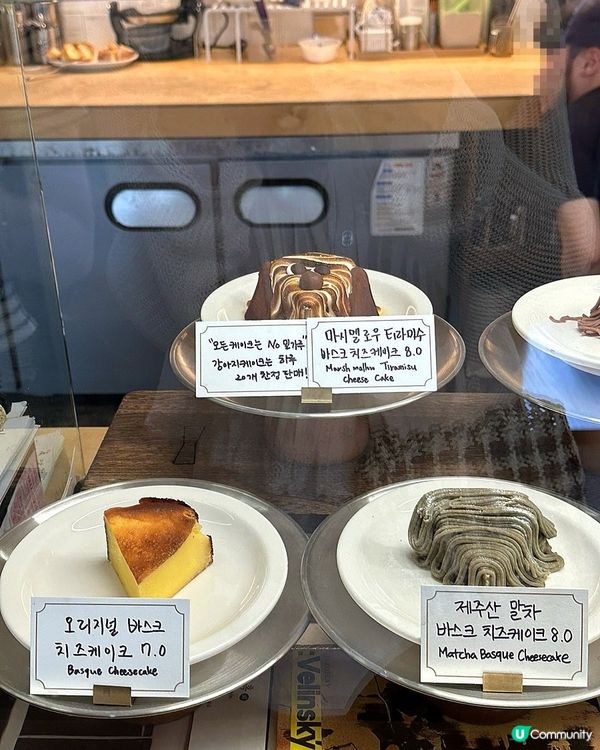 "모든케이크는 No 밀가루
강아지케이크는 하루
20개 한정 판매!
마시멜로우 티라미수
바스크치즈케이크 8.0
Marsh mallow Tiramisu
Cheese Cake
오리지널 바스크
치즈케이크 7.0
Basque Cheesecake
제주산 말차
바스크 치즈케이크 8.0
Matcha Basque Cheesecake
Velinsky
U Community